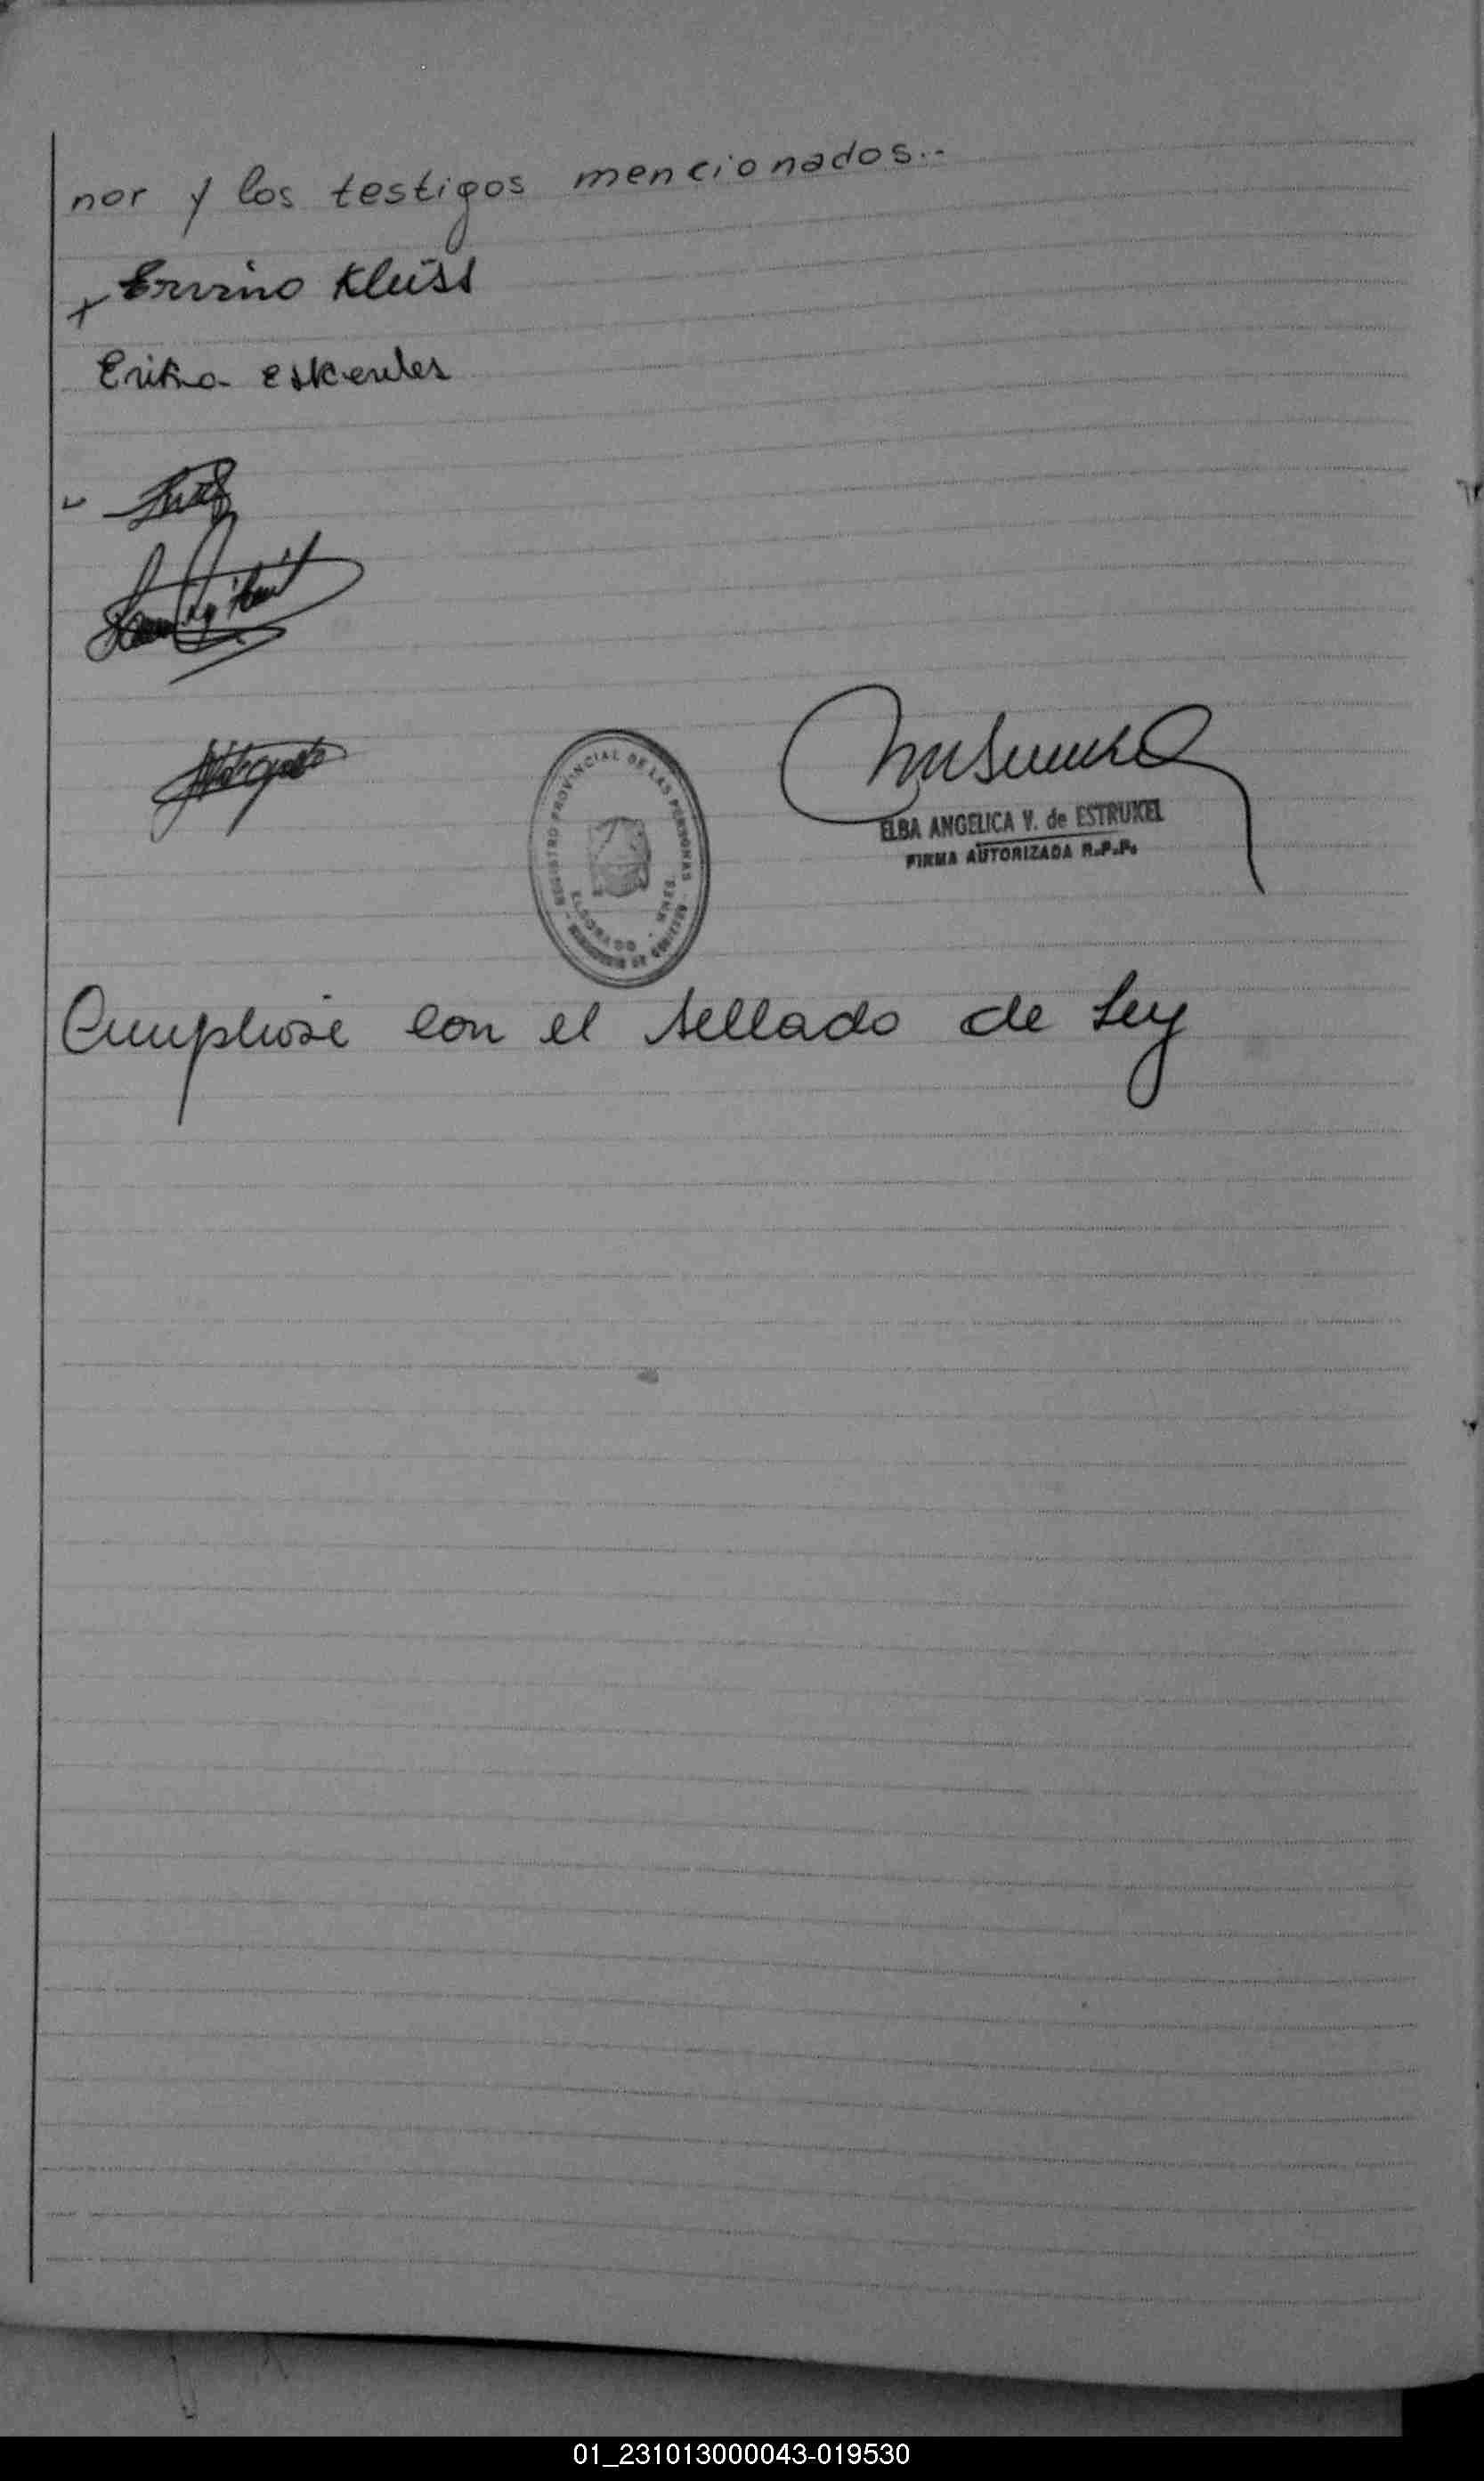 nor y los testigos mencionados.-
x Ervino Kleist
Erika
REGISTRO PROVINCIAL DE LAS PERSONAS
ELDORADO - MNES.
ELBA ANGELICA V. de ESTRUKEL
FIRMA AUTORIZADA R.P.P.
Cumpliose con el sellado de Ley
01_231013000043-019530